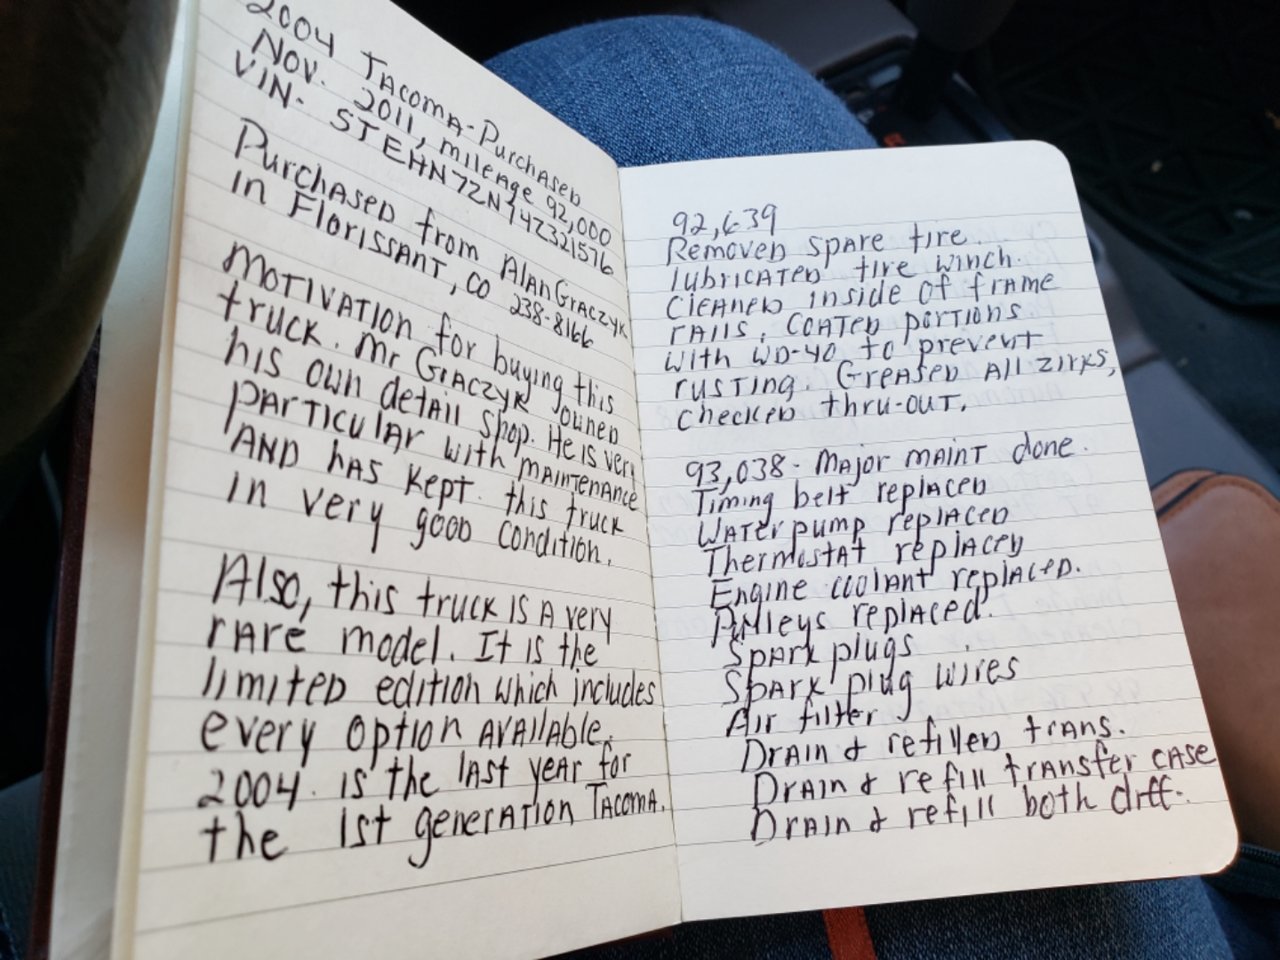 2004 TACOMA-PURCHASED
NOV. 2011, mileage 92,000
VIN- STEHN72N74Z321576
PURCHASED from ALAN GRACZYK
in FLORISSANT, CO 238-8166
MOTIVATION for buying this
truck. Mr GRACZYK owned
his own detail shop. He is very
PARTICULAR with MAINTENANCE
AND has KEPT this truck
in very good condition.
Also, this truck IS A very
RARE model. It is the
limited edition which includes
every option AVAILABLE.
2004 is the last year for
the 1st generation TACOMA.
92,639
Removed spare tire.
lubricated tire winch.
Cleaned inside of frame
rails. Coated portions
with WD-40 to prevent
rusting. Greased All zirks,
checked thru-out.
93,038- Major maint done.
Timing belt replaced
Water pump replaced
Thermostat replaced
Engine coolant replaced.
Pulleys replaced.
Spark plugs
Spark plug wires
Air filter
Drain & refilled trans.
Drain & refill transfer case
Drain & refill both diff.